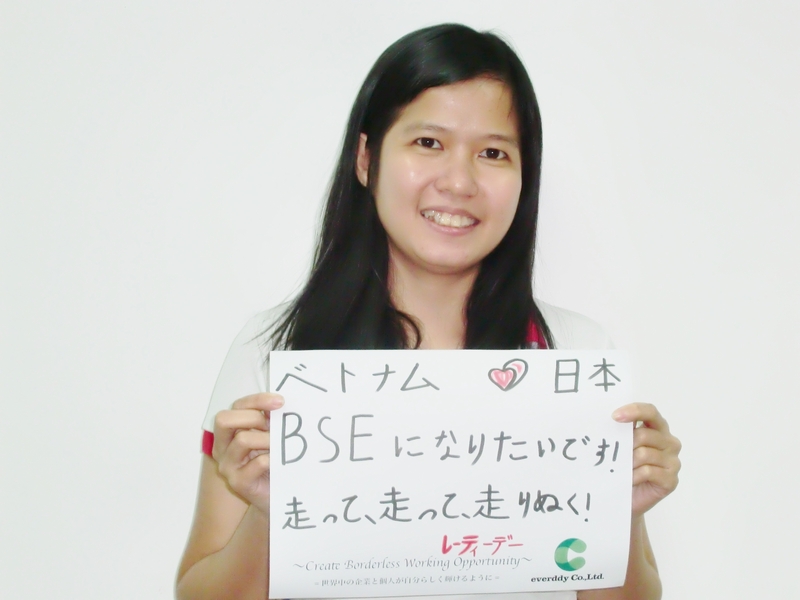 ベトナム 日本
BSEになりたいです!
走って、走って、走りぬく!
レーティーデー
～Create Borderless Working Opportunity～
=世界中の企業と個人が自分らしく輝けるように=
everddy Co.,Ltd.